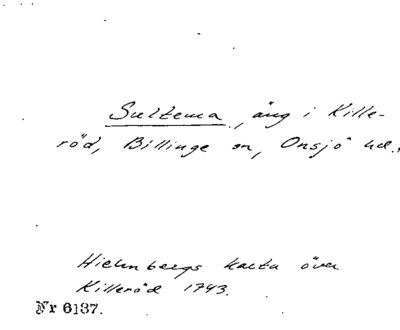 Sultema, äng i Kille-
röd, Billinge sn, Onsjö hd.,
Hielmbergs karta över
Killeröd 1743.
Nr 6137.